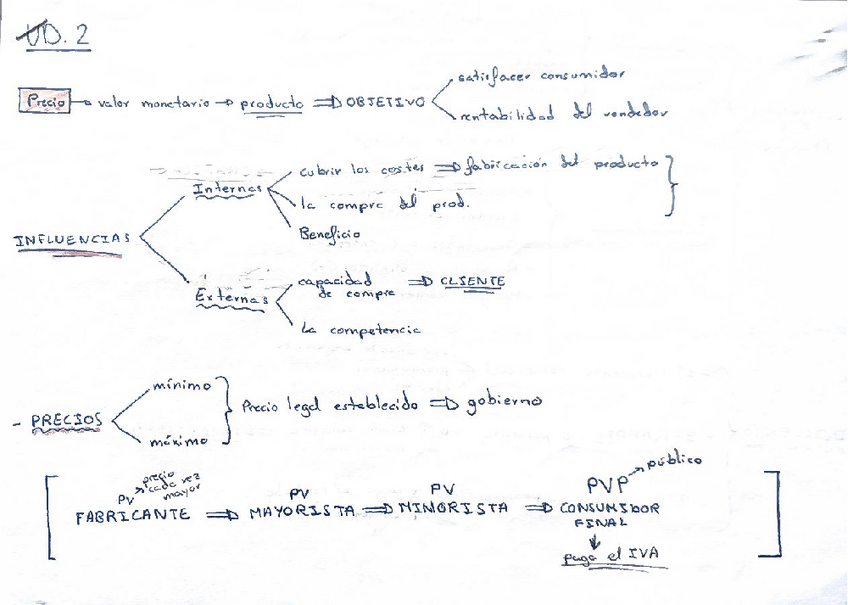 UD. 2
satisfacer consumidor
Precio → valor monetario → producto ⇒ OBJETIVO
rentabilidad del vendedor
cubrir los costes ⇒ fabricación del producto
Internas
la compra del prod.
Beneficio
INFLUENCIAS
capacidad de compra ⇒ CLIENTE
Externas
La competencia
mínimo
- PRECIOS
Precio legal establecido ⇒ gobierno
máximo
PV → precio cada vez mayor
PV
PV
PVP → público
FABRICANTE ⇒ MAYORISTA ⇒ MINORISTA ⇒ CONSUMIDOR FINAL
paga el IVA